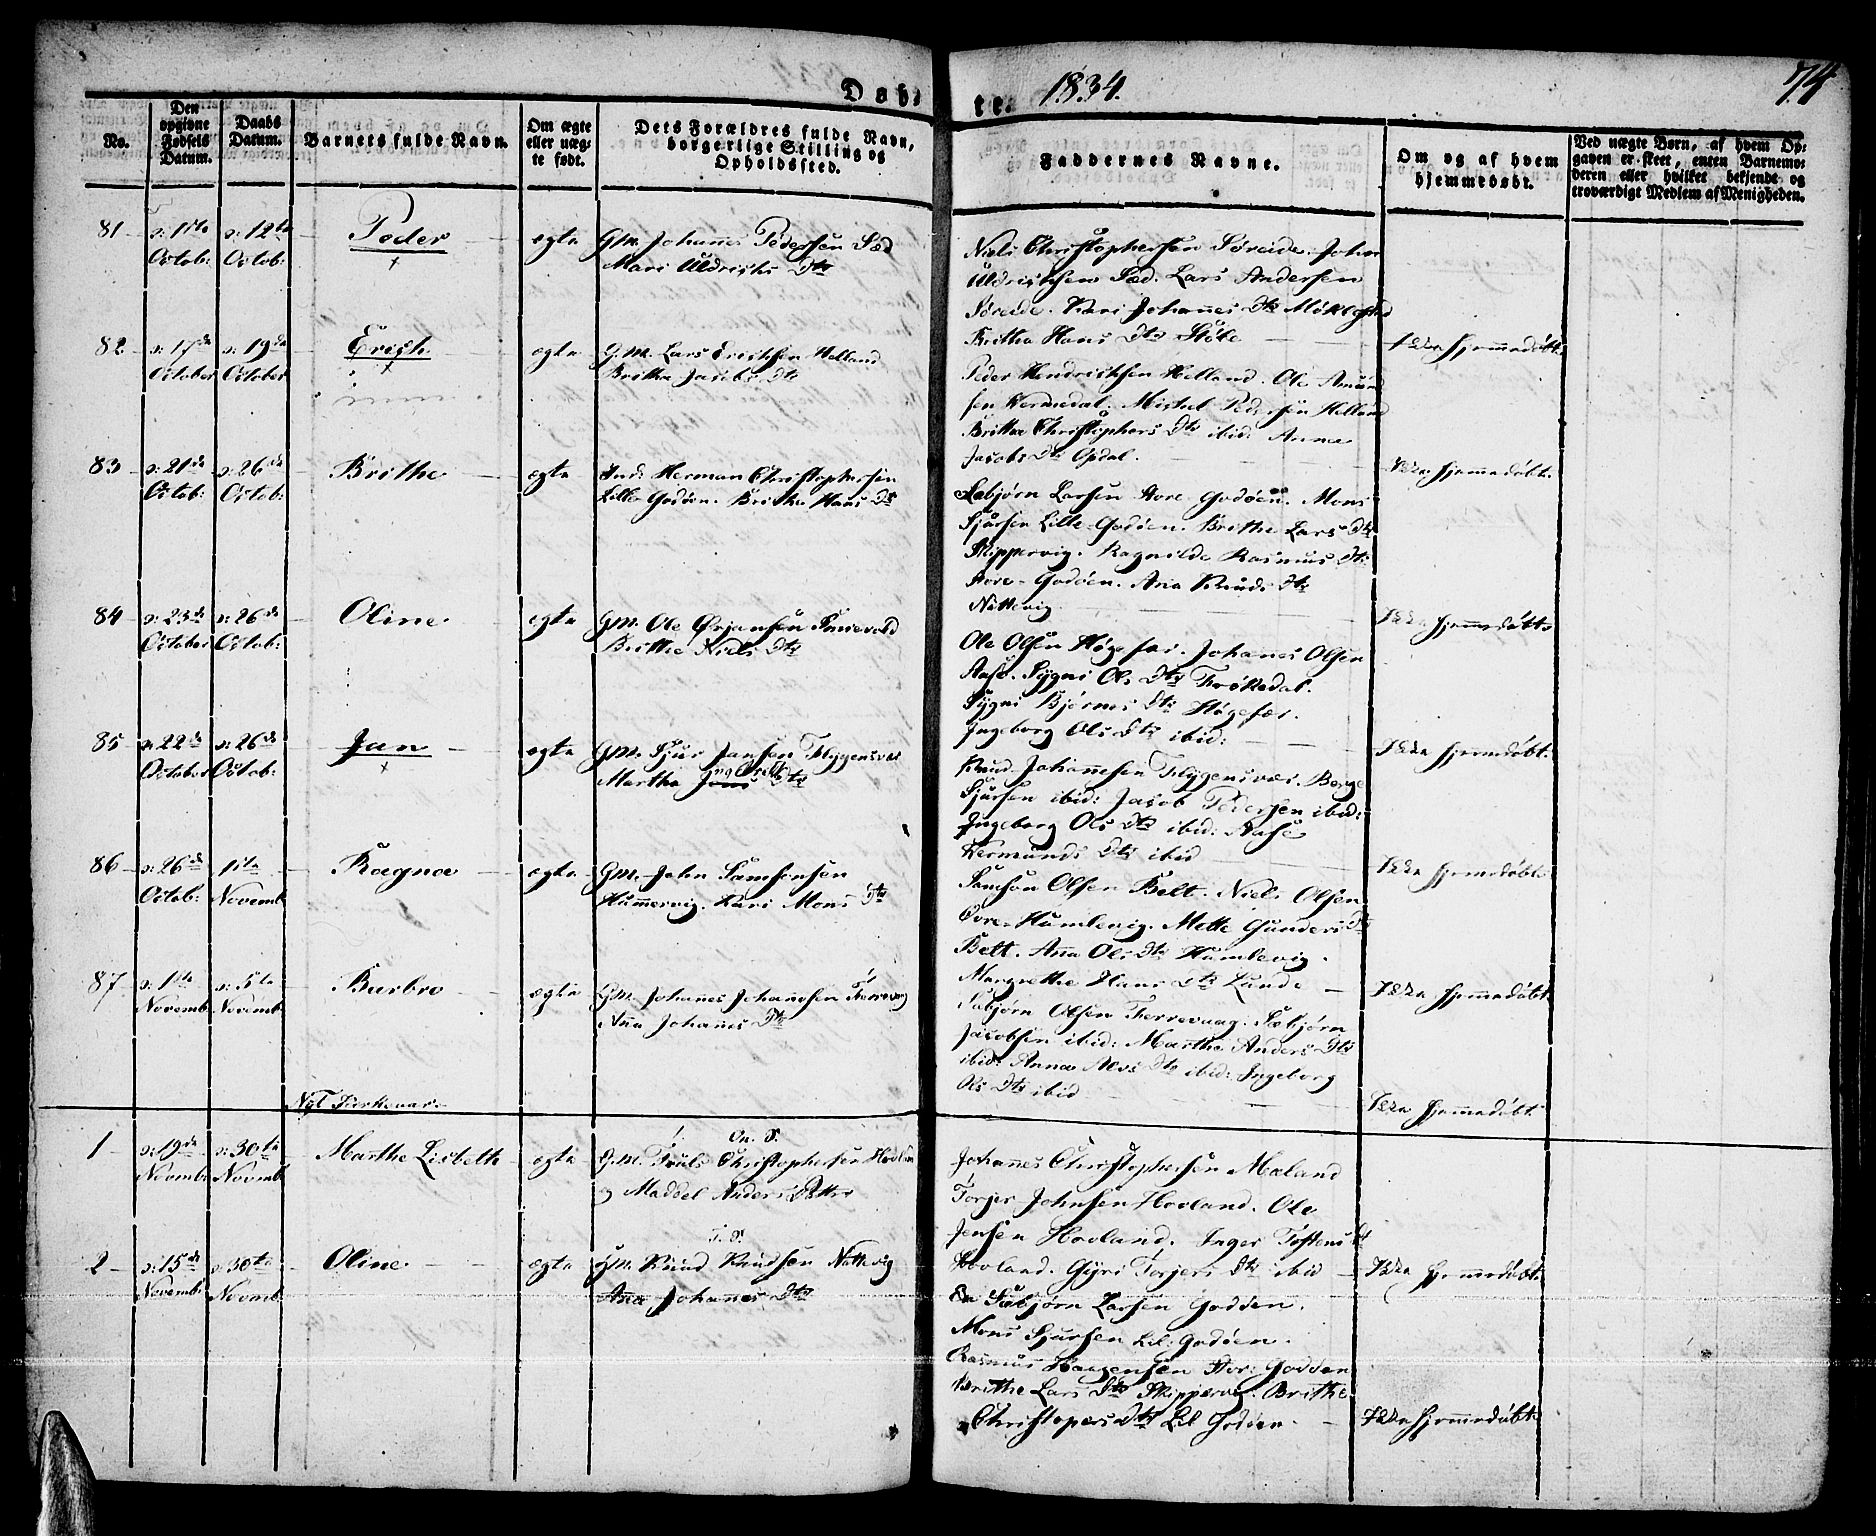 Døbte. 1834. 74
No.
Den opgivne Fødsels Datum.
Daabs Datum.
Barnets fulde Navn.
Om ægte eller uægte født.
Dets Forældres fulde Navn, borgerlige Stilling og Opholdssted.
Faddernes Navne.
Om og af hvem hjemmedøbt.
Ved uægte Børn, af hvem Opgaven er skeet, enten Barnemoderen eller hvilket bekjendt og troværdigt Medlem af Menigheden.
81 d: 11te Octob: d: 12te Octob: Peder ægte Gm. Johannes Pedersen Sæd
Mari Uldrichs Dtr
Niels Christophersen Søreide. John
Uldrichsen Sæd. Lars Andersen
Søreide. Kari Johannes Dtr Møklested
Britha Hans Dtr Støle
Ikke hjemmedøbt.
82 d: 17de October d: 19de October Erich ægte G.M. Lars Erichsen Helland
Britha Jacobs Dtr
Peder Hendrichsen Helland. Ole Amund
sen Vermedal. Michel Pedersen Helland
Britha Christophers Dtr ibid: Anna
Jacobs Dtr Opdal.
Ikke hjemmedøbt.
83 d: 21de Octob: d: 26de Octob: Brithe ægte Ind: Herman Christophersen
Lille Godøen. Brithe Hans Dtr
Sæbjørn Larsen Store Godøen. Mons
Sjursen Lille-Godøen. Brithe Lars Dtr
Skippervig. Ragnilde Rasmus Dtr
Store-Godøen. Ana Knuds Dtr
Nattevig.
Ikke hjemmedøbt
84 d: 23de October d: 26de Octob: Oline ægte Gm. Ole Ørjansen
Brithe Niels Dtr
Ole Olsen Høgefær. Johanes Olsen
Aase. Sygni Ols Dtr Frøkedal.
Sygni Bjørnes Dtr Høgefær.
Ingeborg Ols Dtr ibid:
Ikke hjemmedøbt.
85 d: 22de October d: 26de Octob: Jan ægte Gm. Sjur Jansen Flyggensvær
Martha Jons Dtr
Knud Johannesen Flygensvær. Berge
Sjursen ibid: Jacob Pedersen ibid:
Ingeborg Ols Dtr ibid: Aase
Vermunds Dtr ibid
Ikke hjemmedøbt
86 d: 26de Octob: 1ste Novemb. Ragna ægte Gm. John Samsonsen
Hammervig. Kari Mons Dtr
Samson Olsen Belt. Niels Olsen
Øvre-Humlevig. Mette Gunders Dtr
Belt. Anna Ols Dtr Humlevig.
Margrethe Hans Dtr Lunde
Ikke hjemmedøbt
87 d: 1ste Novemb. d: 5te Novemb. Barbro ægte Gm. Johannes Johannesen Færrevaag
Anna Johannes Dtr
Sæbjørn Olsen Ferrevaag. Sæbjørn
Jacobsen ibid: Marthe Anders Dtr
ibid: Anna Nels Dtr ibid: Ingeborg
Ols Dtr ibid
Ikke hjemmedøbt
Nyt Kirkeaar
1 d: 19de Novemb: d: 30te Novemb. Marthe Lisbeth ægte G.M. Truls Christophersen Hovland
og Maddel Anders Datter
Johannes Christophersen Mæland
Torjer Johnsen Hovland. Ole
Jensen Hovland. Inger Tostens Dt
Hovland. Gyri Torjers Dtr ibid
Ikke hjemmedøbt
2 d: 15de Novemb: d: 30te Novemb. Oline ægte Gm. Knud Knudsen Nattevig
Ana Johannes Dtr
Sæbjørn Larsen Godøen.
Mons Sjursen Lil: Godøen.
Rasmus Haagensen Stor: Godøen
Brithe Lars Dtr Skippervig. Brithe
Christophers Dtr Lil Godøen.
Ikke hjemmedøbt